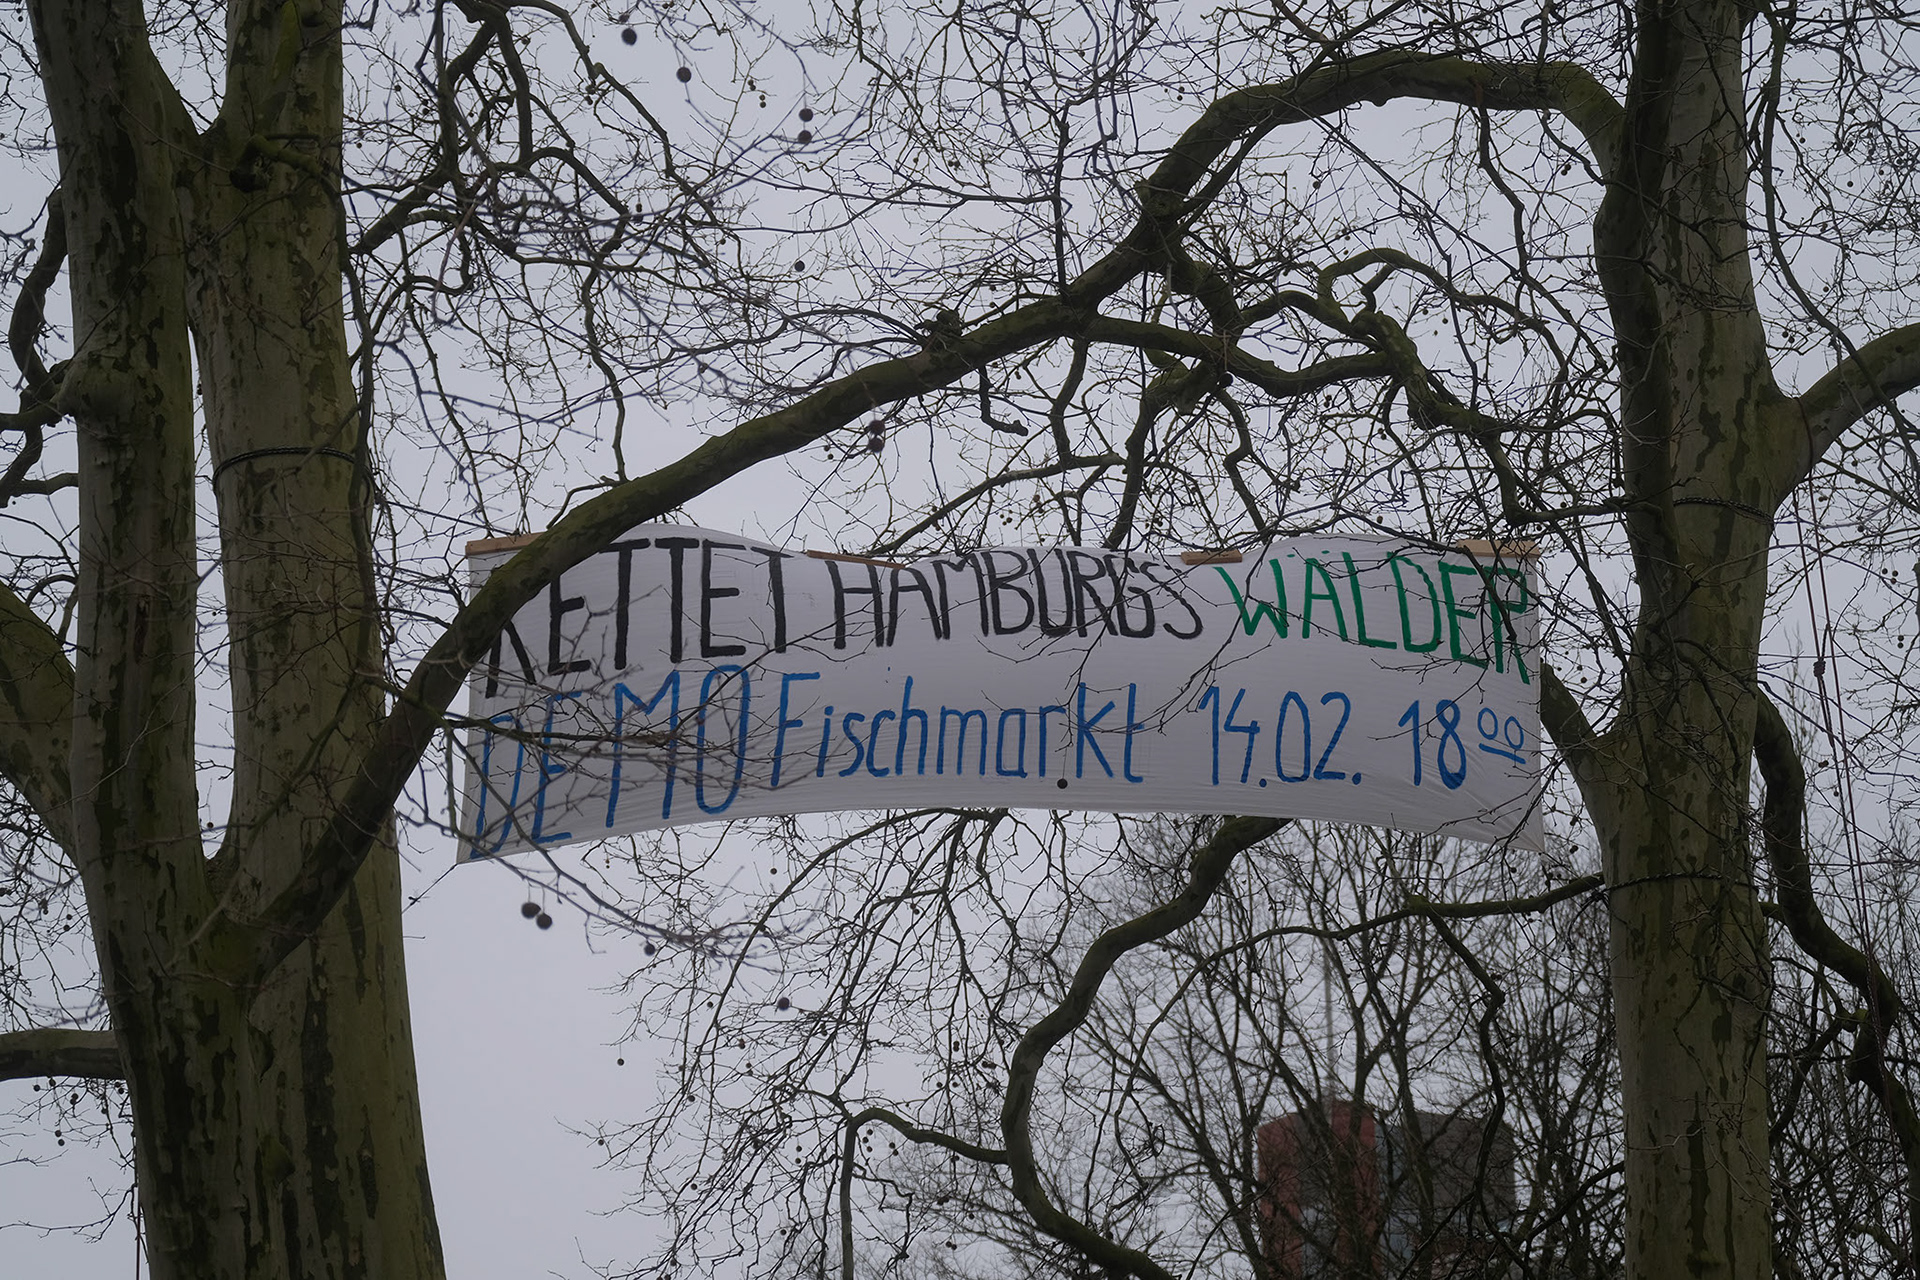 RETTET HAMBURGS WÄLDER
DEMO Fischmarkt 14.02. 18⁰⁰